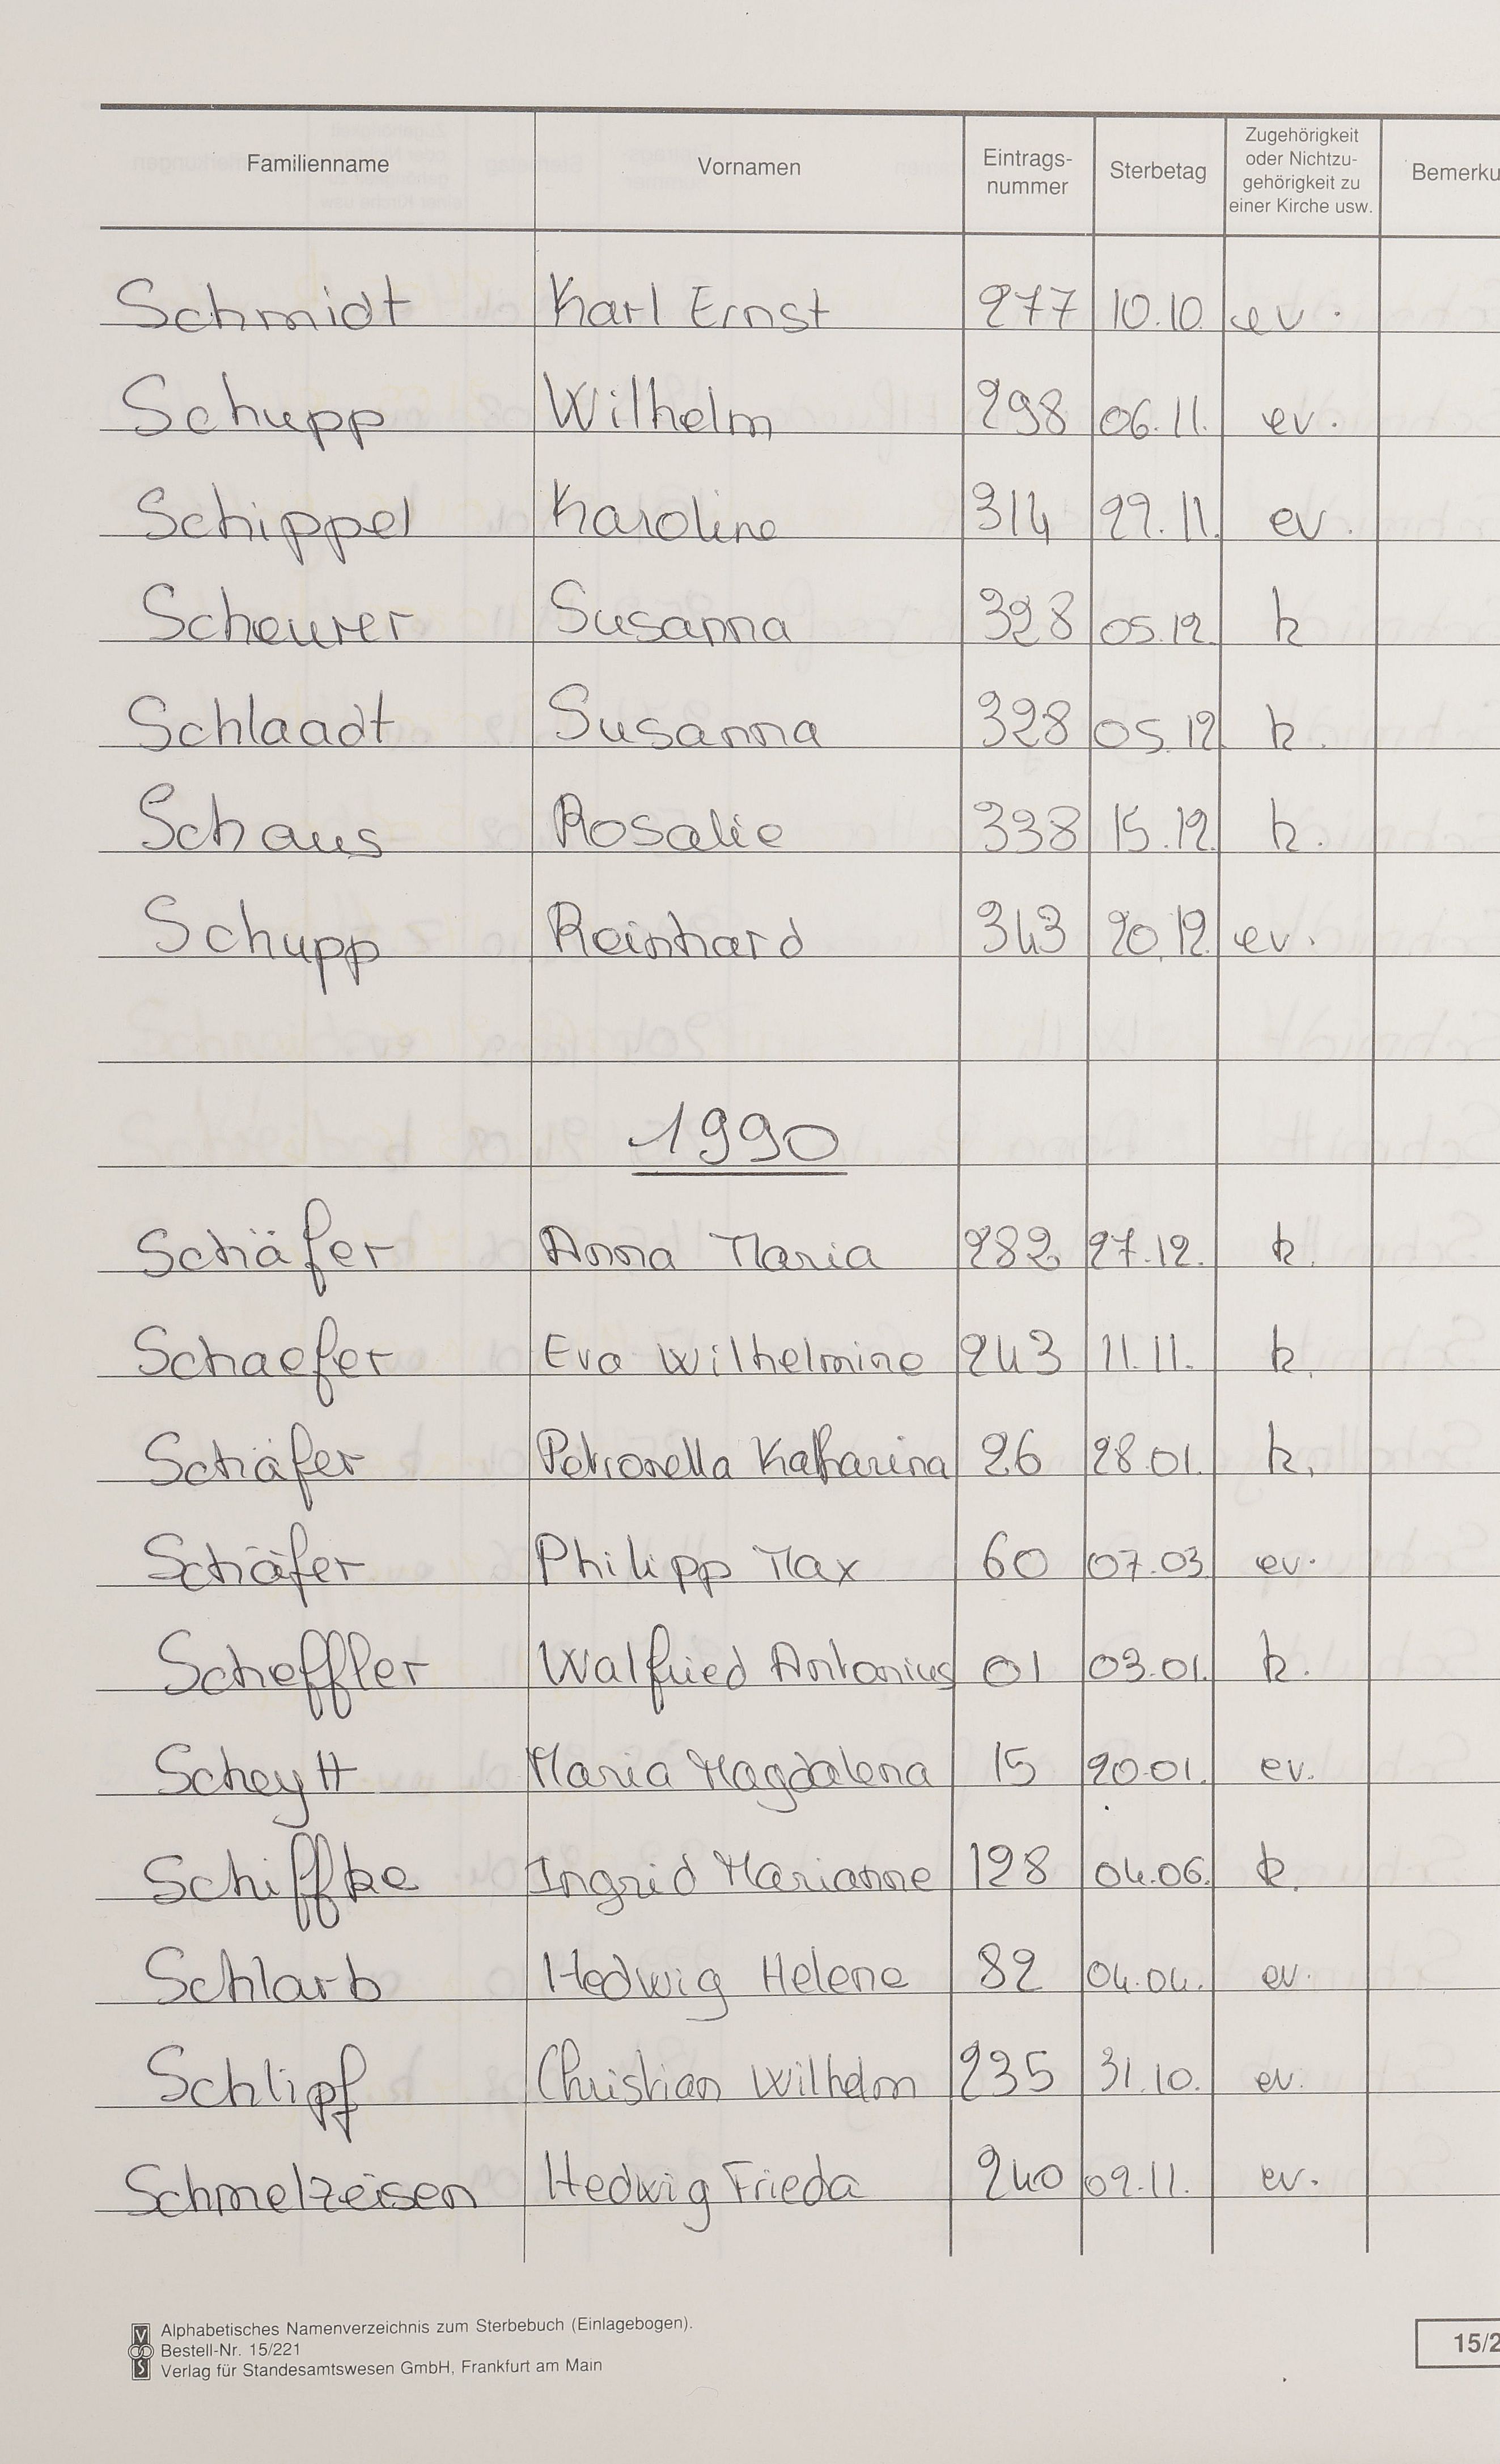 Familienname Vornamen Eintrags-nummer Sterbetag Zugehörigkeit oder Nichtzu-gehörigkeit zu einer Kirche usw. Bemerku
Schmidt Karl Ernst 277 10.10. ev.
Schupp Wilhelm 298 06.11. ev.
Schippel Karoline 314 22.11. ev.
Scheurer Susanna 328 05.12. k
Schlaadt Susanna 328 05.12. k.
Schaus Rosalie 338 15.12. k.
Schupp Reinhard 343 20.12. ev.
1990
Schäfer Anna Maria 282 27.12. k.
Schaefer Eva Wilhelmine 243 11.11. k.
Schäfer Petronella Katharina 26 28.01. k.
Schäfer Philipp Max 60 07.03. ev.
Scheffler Walfried Antonius 01 03.01. k.
Scheytt Maria Magdalena 15 20.01. ev.
Schiffke Ingrid Marianne 128 04.06. k.
Schlarb Hedwig Helene 82 04.04. ev.
Schlipf Christian Wilhelm 235 31.10. ev.
Schmelzeisen Hedwig Frieda 240 09.11. ev.
Alphabetisches Namenverzeichnis zum Sterbebuch (Einlagebogen).
Bestell-Nr. 15/221
Verlag für Standesamtswesen GmbH, Frankfurt am Main
15/2